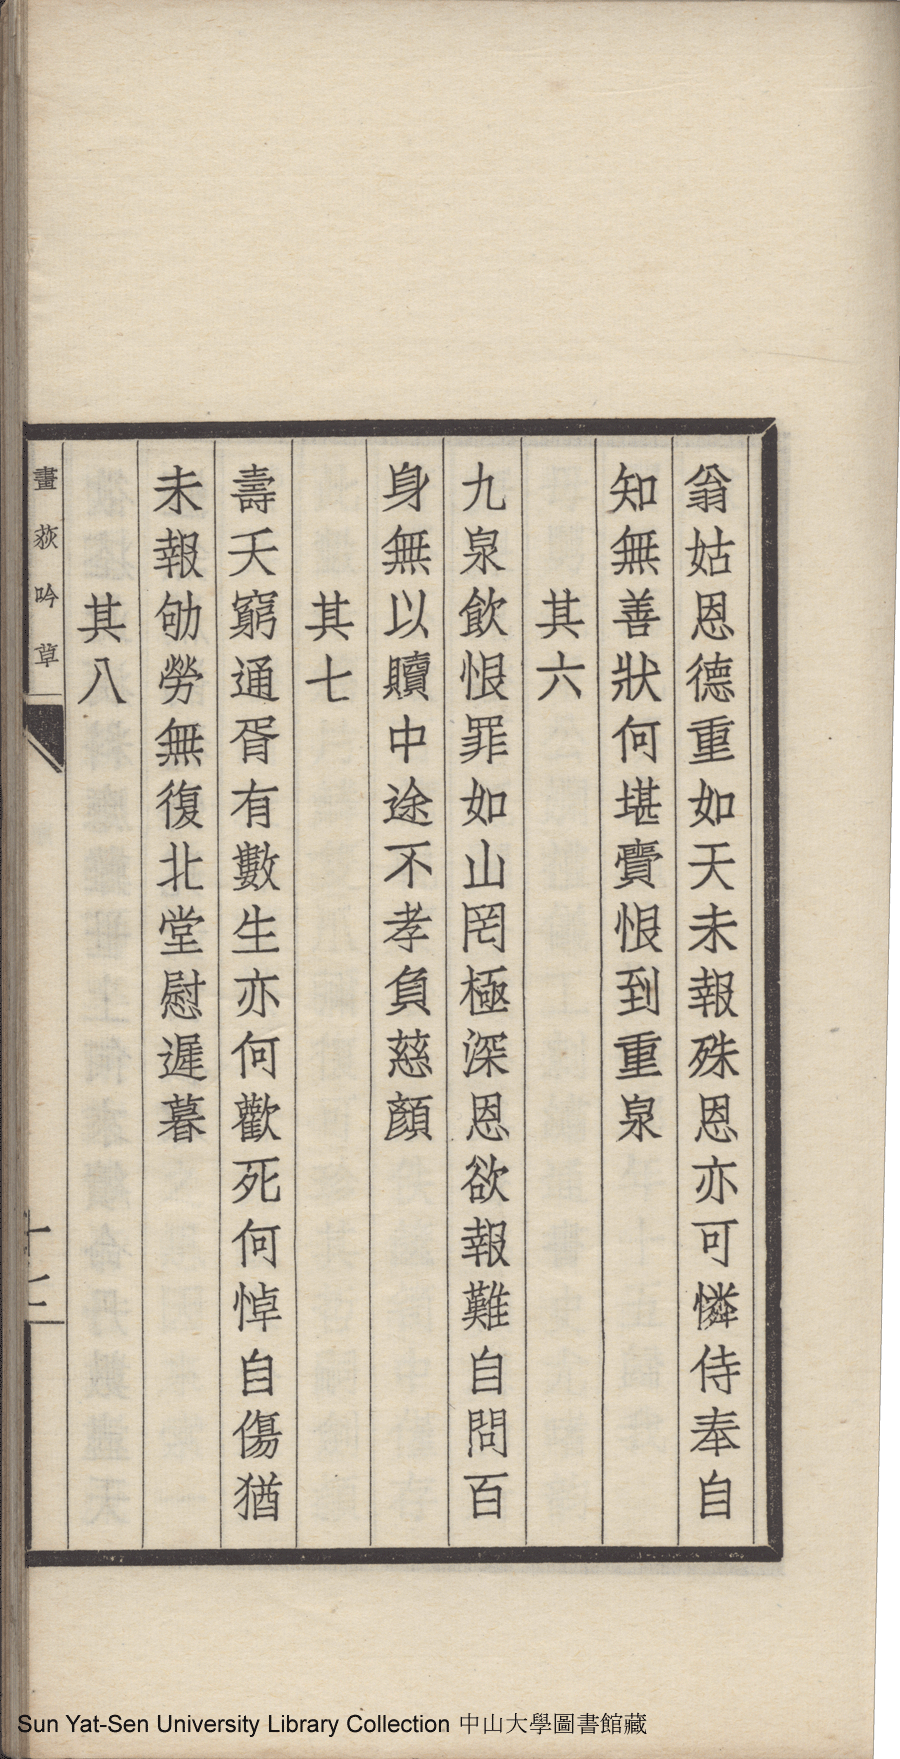 翁姑恩德重如天未報殊恩亦可憐侍奉自
知無善狀何堪賷恨到重泉
其六
九泉飲恨罪如山罔極深恩欲報難自問百
身無以贖中途不孝負慈顏
其七
壽夭窮通胥有數生亦何歡死何悼自傷猶
未報劬勞無復北堂慰遲暮
其八
畫荻吟草
Sun Yat-Sen University Library Collection 中山大學圖書館藏